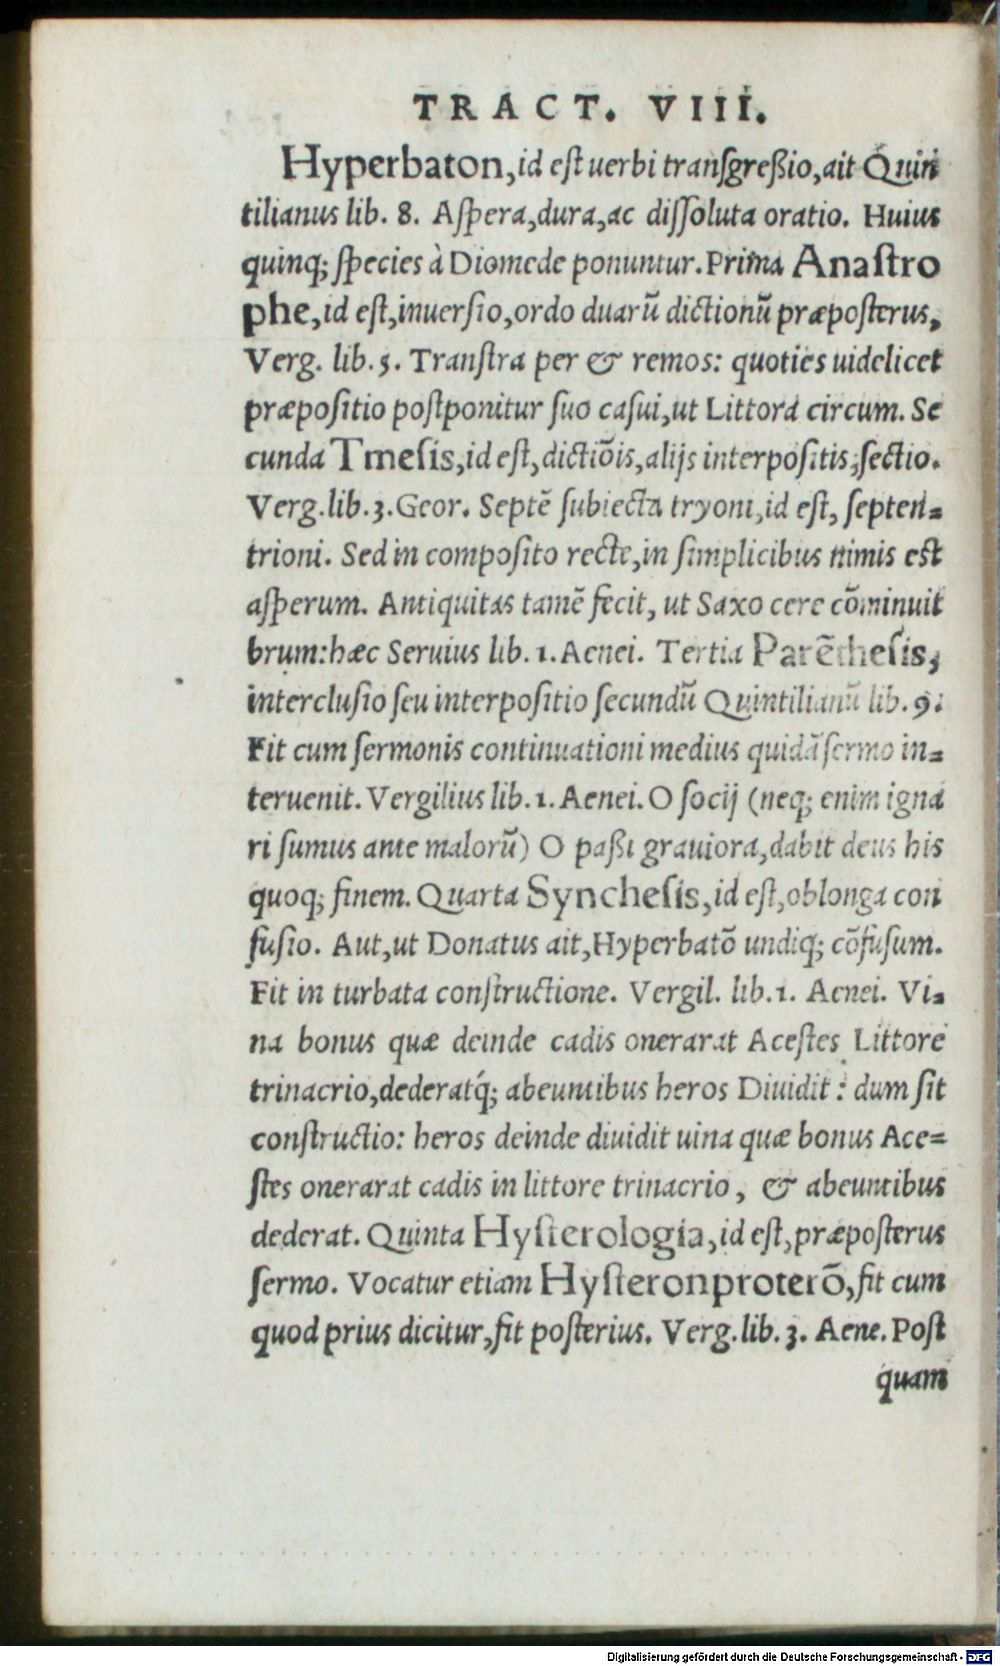 TRACT. VIII.
Hyperbaton, id eſt uerbi tranſgreßio, ait Quin
tilianus lib. 8. Aſpera, dura, ac diſſoluta oratio. Huius
quinq; ſpecies à Diomede ponuntur. Prima Anaſtro
phe, id eſt, inuerſio, ordo duarũ dictionũ præpoſterus,
Verg. lib. 5. Tranſtra per & remos: quoties uidelicet
præpoſitio poſtponitur ſuo caſui, ut Littora circum. Se
cunda Tmeſis, id eſt, dictiõis, alijs interpoſitis, ſectio.
Verg. lib. 3. Geor. Septẽ ſubiecta tryoni, id eſt, ſepten=
trioni. Sed in compoſito recte, in ſimplicibus nimis eſt
aſperum. Antiquitas tamẽ fecit, ut Saxo cere cõminuit
brum: hæc Seruius lib. 1. Aenei. Tertia Parẽtheſis,
intercluſio ſeu interpoſitio ſecundũ Quintilianũ lib. 9.
Fit cum ſermonis continuationi medius quidã ſermo in=
teruenit. Vergilius lib. 1. Aenei. O ſocij (neq; enim igna
ri ſumus ante malorũ) O paßi grauiora, dabit deus his
quoq; finem. Quarta Syncheſis, id eſt, oblonga con
fuſio. Aut, ut Donatus ait, Hyperbatõ undiq; cõfuſum.
Fit in turbata conſtructione. Vergil. lib. 1. Aenei. Vi=
na bonus quæ deinde cadis onerarat Aceſtes Littore
trinacrio, dederatq́; abeuntibus heros Diuidit: dum ſit
conſtructio: heros deinde diuidit uina quæ bonus Ace=
ſtes onerarat cadis in littore trinacrio, & abeuntibus
dederat. Quinta Hyſterologia, id eſt, præpoſterus
ſermo. Vocatur etiam Hyſteronproterõ, fit cum
quod prius dicitur, fit poſterius. Verg. lib. 3. Aene. Poſt
quam
Digitalisierung gefördert durch die Deutsche Forschungsgemeinschaft - DFG